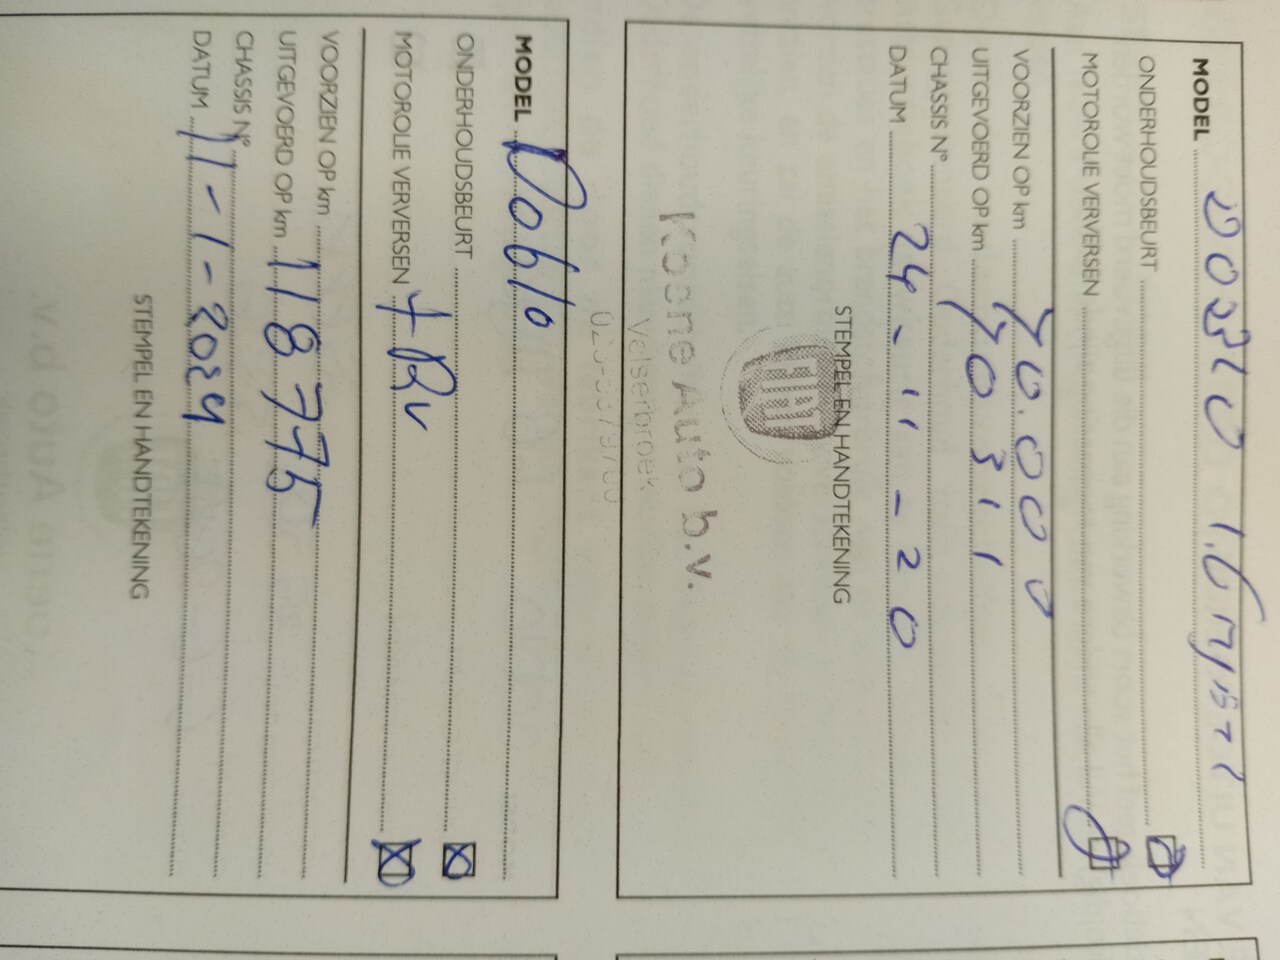 MODEL Doblo 1.6 MJet
ONDERHOUDSBEURT
MOTOROLIE VERVERSEN
VOORZIEN OP km 70.000
UITGEVOERD OP km 70311
CHASSIS N°
DATUM 24-11-20
STEMPEL EN HANDTEKENING
FIAT
Koene Auto b.v.
Velserbroek
MODEL Doblo
ONDERHOUDSBEURT
MOTOROLIE VERVERSEN + Rv
VOORZIEN OP km
UITGEVOERD OP km 118775
CHASSIS N°
DATUM 11-1-2024
STEMPEL EN HANDTEKENING